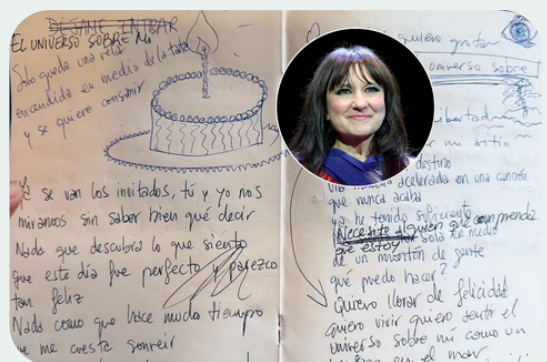 DÉJAME ENTRAR
EL UNIVERSO SOBRE MÍ
Sólo queda una vela
encendida en medio de la tarta
y se quiere consumir
Ya se van los invitados, tú y yo nos
miramos sin saber bien qué decir.
Nada que descubra lo que siento
que este día fue perfecto y parezco
tan feliz
Nada como que hace mucho tiempo
que me cuesta sonreir
quiero gritar
universo sobre
libertad
un sitio
destino
acelerada en una canción
que nunca acaba
ya he tenido suficiente
Necesito alguien que comprenda
que estoy sola en medio
de un montón de gente
qué puedo hacer?
Quiero llorar de felicidad
quiero vivir quiero sentir el
universo sobre mí como un
en el mar